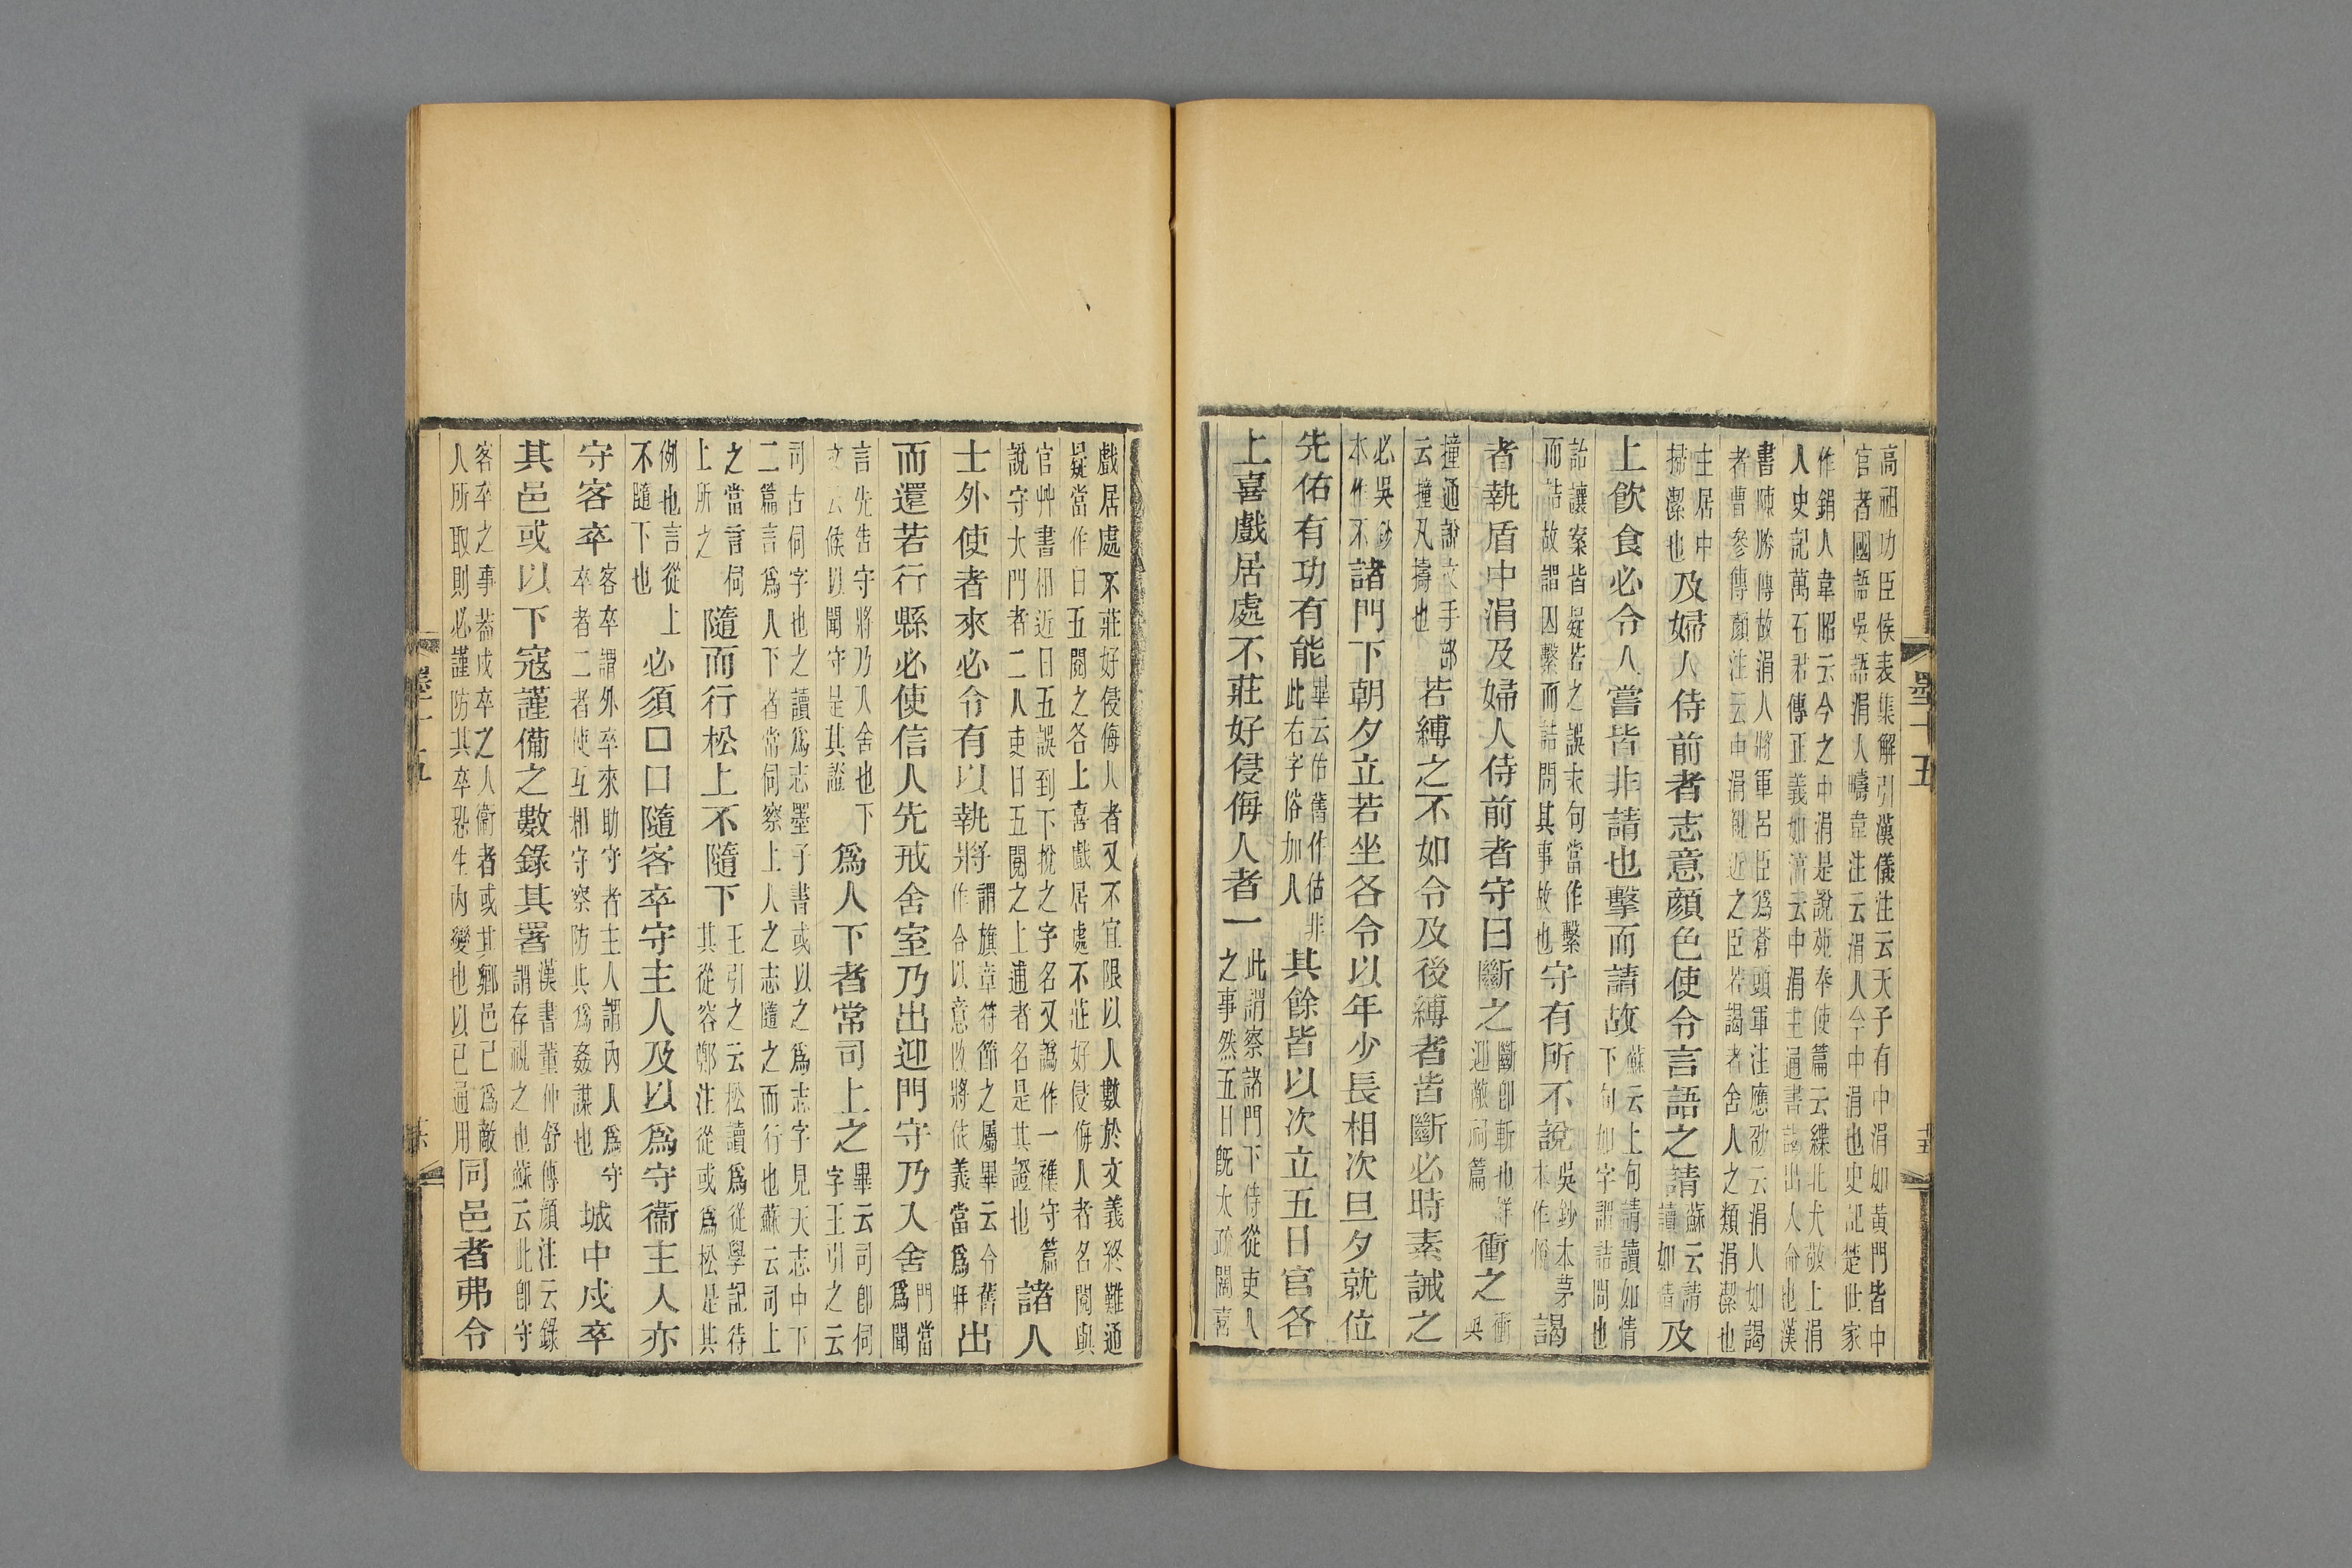 高祖功臣侯表集解引漢儀注云天子有中涓如黃門皆中
官者國語吳語涓人疇韋注云涓人今中涓也史記楚世家
作鋗人韋昭云今之中涓是說苑奉使篇云緤北犬敬上涓
人史記萬石君傳正義如淳云中涓主通書謁出入命也漢
書陳勝傳故涓人將軍呂臣爲蒼頭軍注應劭云涓人如謁
者曹參傳顏注云中涓親近之臣若謁者舍人之類涓潔也
主居中
掃潔也及婦人侍前者志意顏色使令言語之請蘇云請
讀如情及
上飲食必令人嘗皆非請也擊而請故蘇云上句請讀如情
下句如字謂詰問也
詒讓案皆疑若之誤末句當作繫
而詰故謂因繫而詰問其事故也守有所不說吳鈔本茅
本作悅謁
者執盾中涓及婦人侍前者守曰斷之斷卽斬也詳
迎敵祠篇衝之衝
與
撞通說文手部
云撞丮擣也若縛之不如令及後縛者皆斷必時素誡之
必吳鈔
本作不諸門下朝夕立若坐各令以年少長相次旦夕就位
先佑有功有能畢云佑舊作估非
此右字俗加人其餘皆以次立五日官各
上喜戲居處不莊好侵侮人者一此謂察諸門下侍從吏人
之事然五日旣太疏闊喜
戲居處不莊好侵侮人者又不宜限以人數於文義終難通
疑當作日五閱之各上喜戲居處不莊好侵侮人者名閱與
官艸書相近日五誤到下挩之字名又譌作一襍守篇
說守大門者二人吏日五閱之上逋者名是其證也諸人
士外使者來必令有以執將謂旗章符節之屬畢云令舊
作合以意改將依義當爲𢪇出
而還若行縣必使信人先戒舍室乃出迎門守乃入舍門當
爲聞
言先告守將乃入舍也下
文云候以聞守是其證爲人下者常司上之畢云司卽伺
字王引之云
司古伺字也之讀爲志墨子書或以之爲志字見天志中下
二篇言爲人下者常伺察上人之志隨之而行也蘇云司上
之當言伺
上所之隨而行松上不隨下王引之云松讀爲從學記待
其從容鄭注從或爲松是其
例也言從上
不隨下也必須口口隨客卒守主人及以爲守衞主人亦
守客卒客卒謂外卒來助守者主人謂內人爲守
卒者二者使互相守察防其爲姦謀也城中戍卒
其邑或以下寇謹備之數錄其署漢書董仲舒傳顏注云錄
謂存視之也蘇云此卽守
客卒之事葢戍卒之人衞者或其鄉邑已爲敵
人所取則必謹防其卒恐生內變也以已通用同邑者弗令
墨十五
墨十五